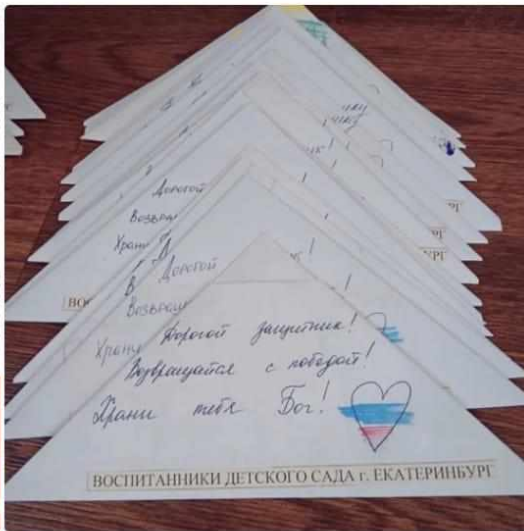 Дорогой
Возвращ
Храни
Дорогой
В
Возвращ
Храни
Дорогой защитник!
Возвращайся с победой!
Храни тебя Бог!
ВОСПИТАННИКИ ДЕТСКОГО САДА г. ЕКАТЕРИНБУРГ